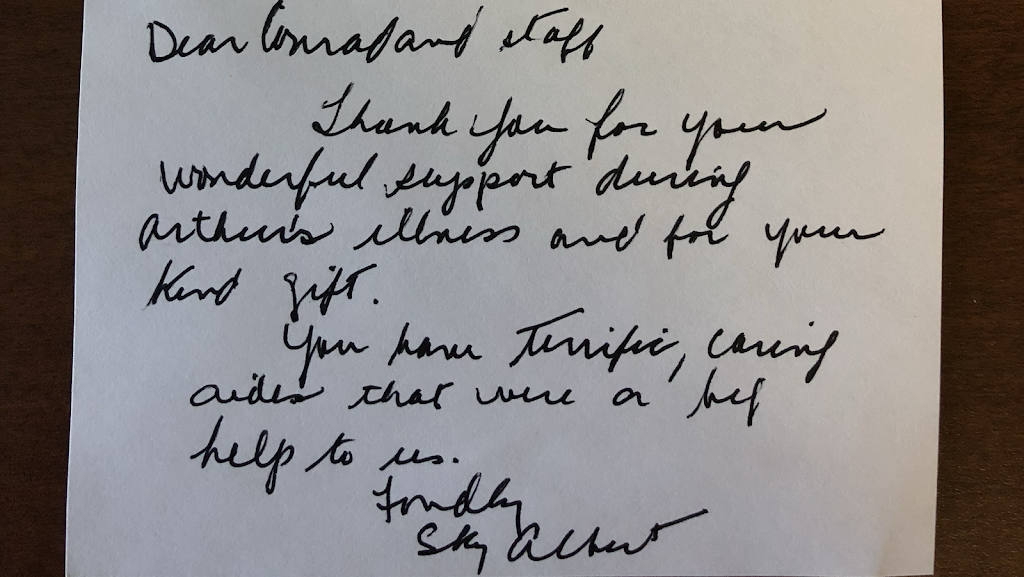 Dear Conrad and staff
Thank you for your
wonderful support during
Arthur's illness and for your
kind gift.
You have terrific, caring
aides that were a big
help to us.
Fondly
Sky Albert